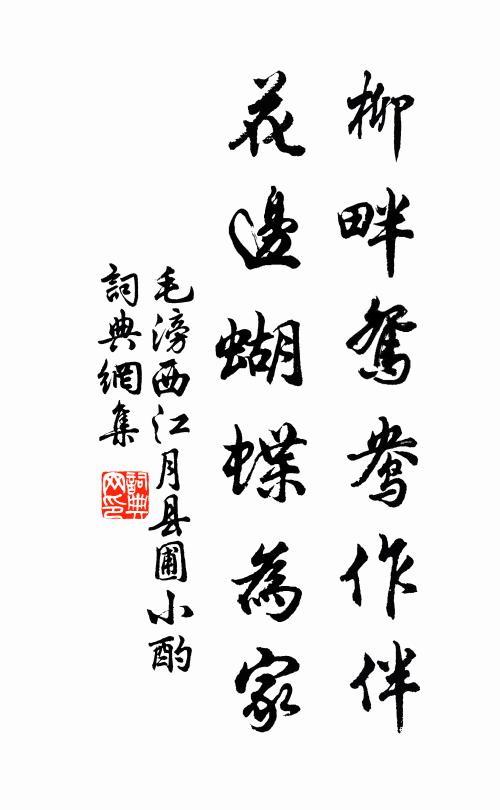 柳畔鴛鴦作伴
花邊蝴蝶為家
毛滂西江月县圃小酌
詞典網集
詞典
网印